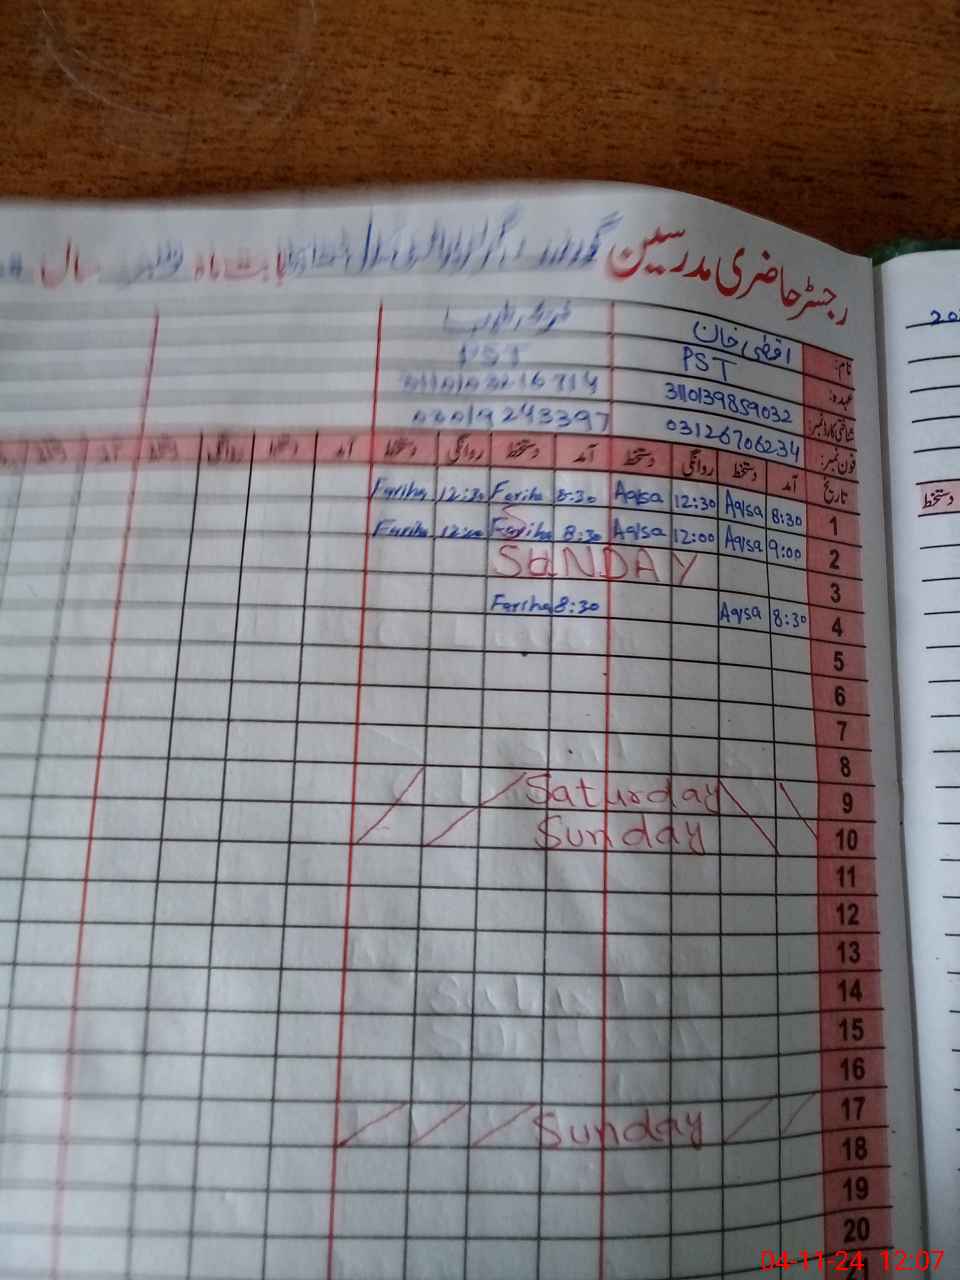 رجسٹر حاضری مدرسین گورنمنٹ گرلز بابت ماہ نومبر سال
نام: اقصٰی خان
عہدہ: PST PST
شناختی کارڈ نمبر: 3110139859032
فون نمبر: 03126706234 03019243397
تاریخ آمد دستخط روانگی دستخط آمد دستخط روانگی دستخط آمد دستخط روانگی دستخط آمد
دستخط
1 8:30 Aqsa 12:30 Aqsa 8:30 Fariha 12:30 Fariha
2 9:00 Aqsa 12:00 Aqsa 8:30 Fariha 12:00 Fariha
3 SUNDAY
4 8:30 Aqsa 8:30 Fariha
5
6
7
8
9 Saturday
10 Sunday
11
12
13
14
15
16
17 Sunday
18
19
20
04-11-24 12:07